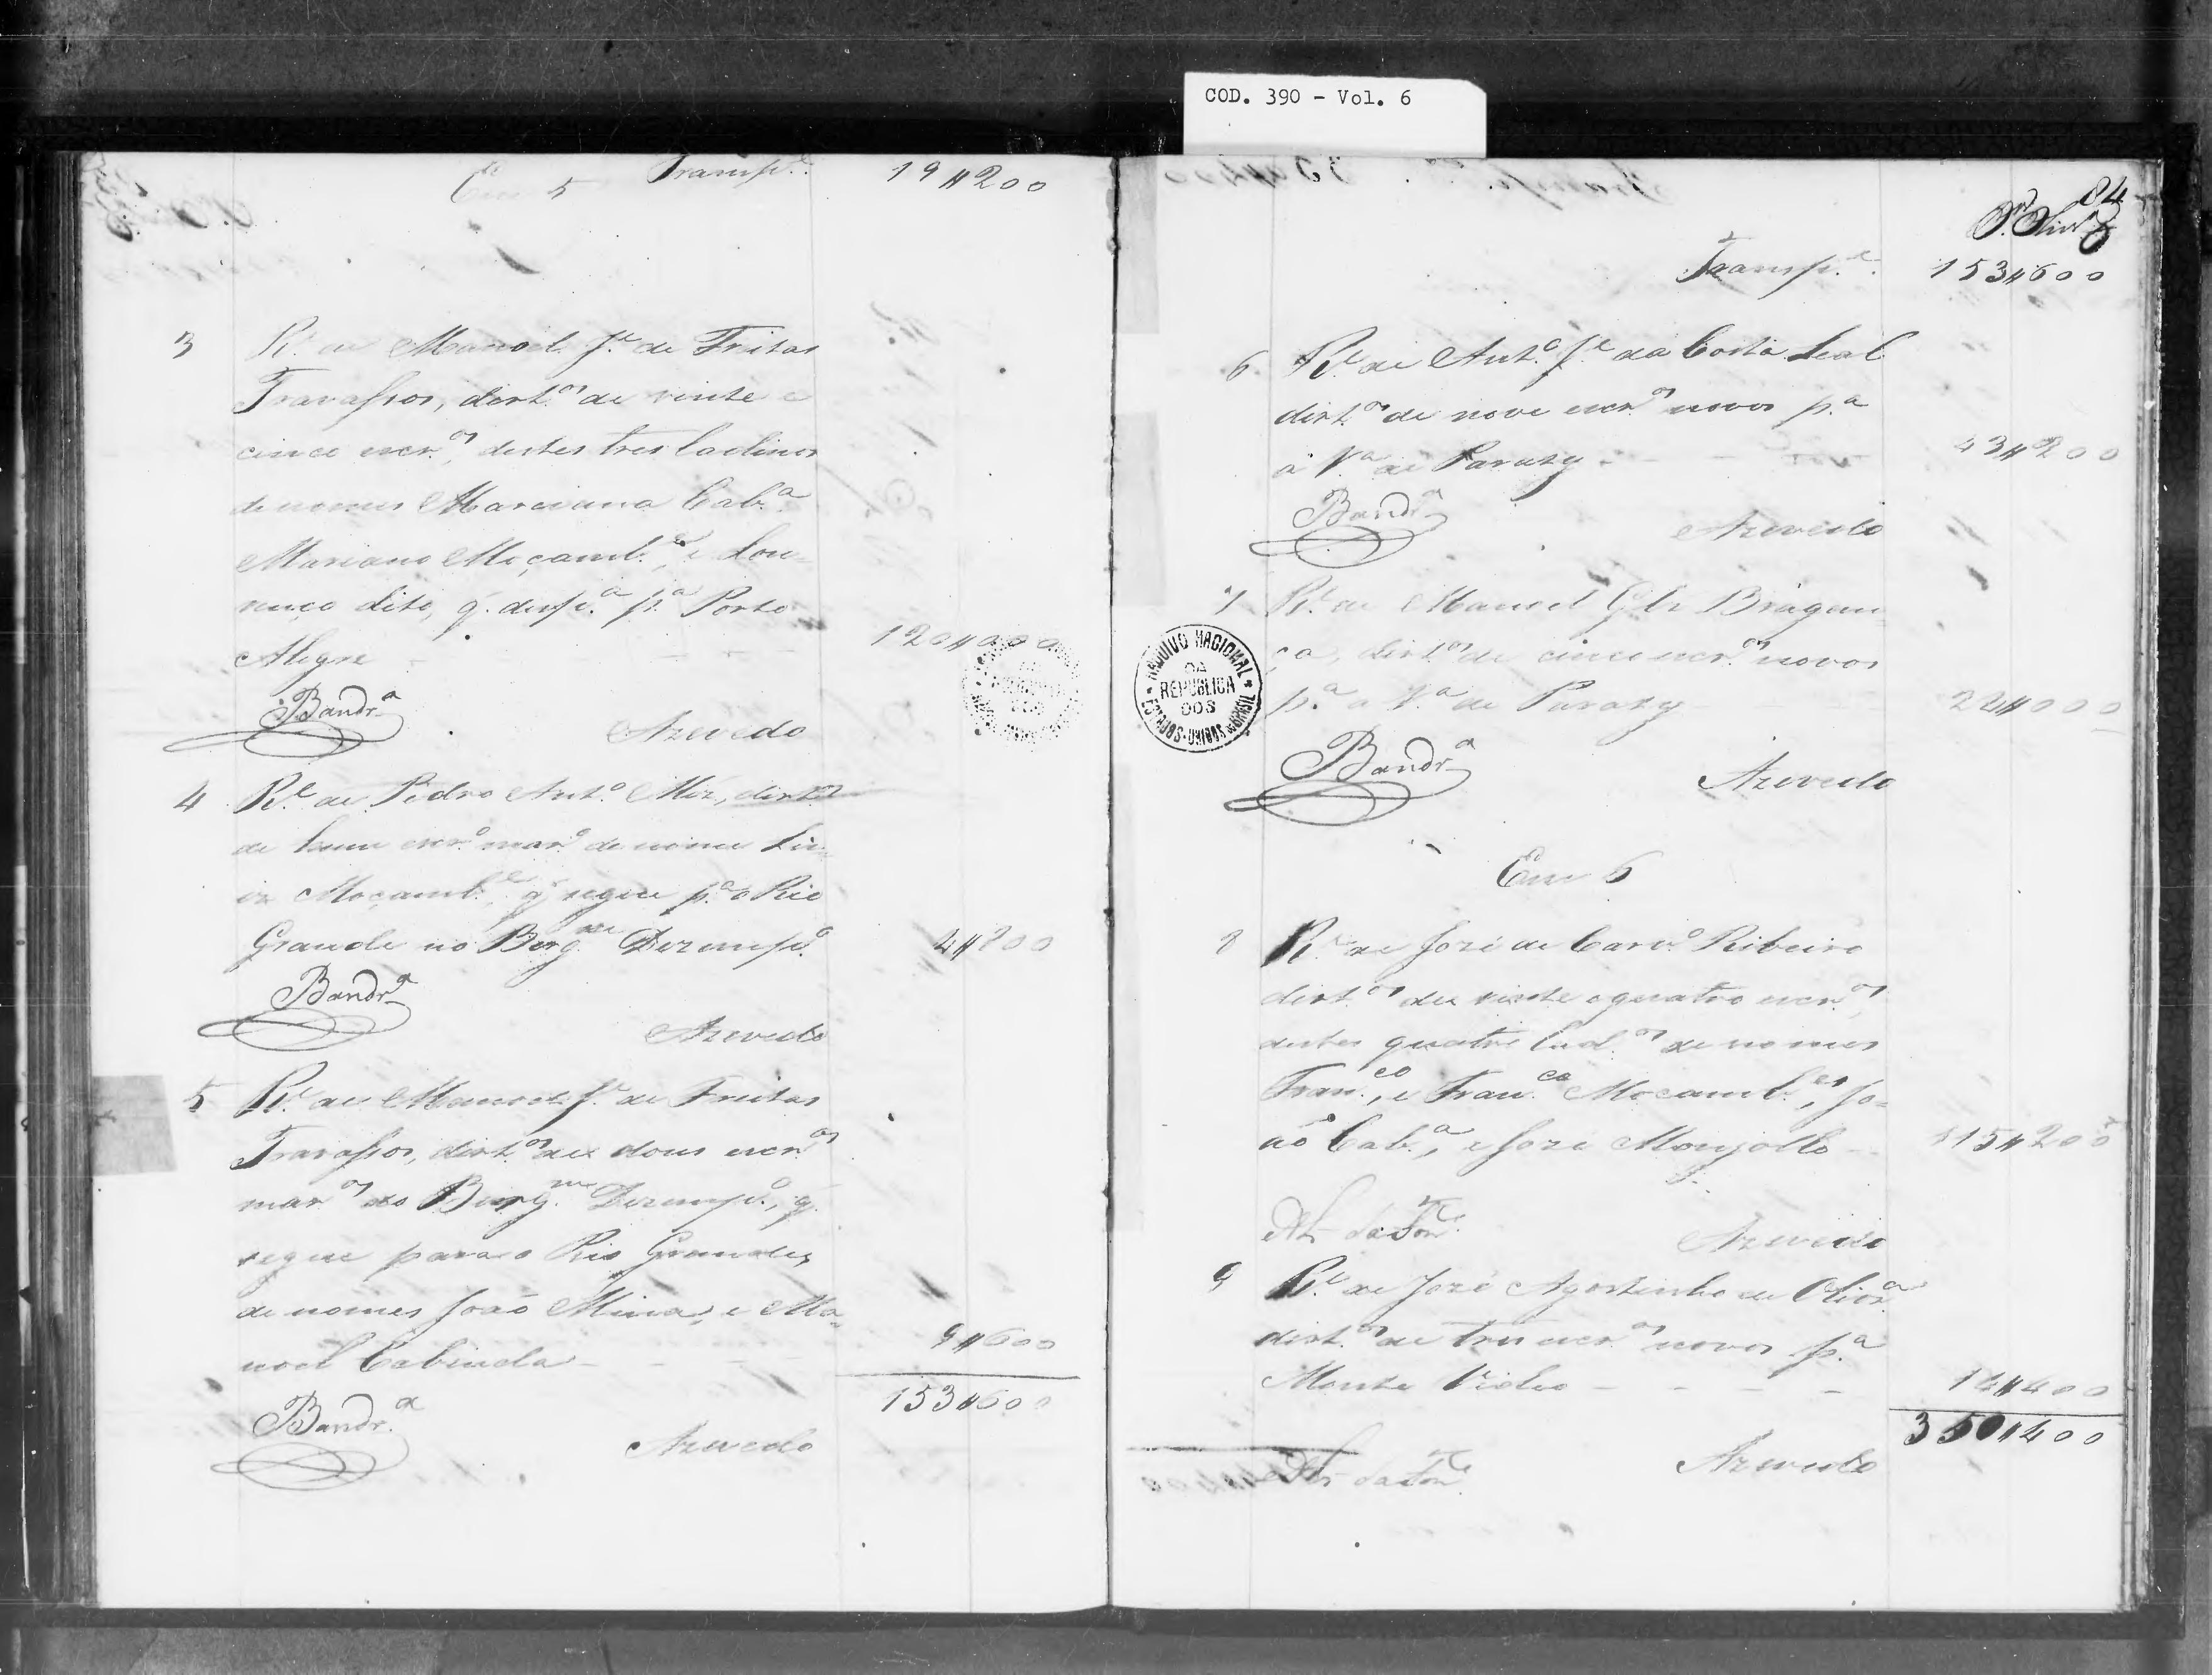 COD. 390 - Vol. 6
Em 5 Transp.e 19$200
3 R.e de Manoel J.e de Freitas
Travassos, dirt.os de vinte e
cinco escr.os, destes tres ladinos
de nomes Marciana Cab.a
Mariano Moçamb.e, e Lou-
renço dito, q. desp.a p.a Porto
Alegre 120$000
Bandr.a
Azevedo
4 R.e de Pedro Ant.o Miz, dirt.os
de hum escr.o mar.o de nome Lu-
iz Moçamb.e q. segue p.a o Rio
Grande no Berg.m Dezemp.o 4$800
Bandr.a
Azevedo
5 R.e de Manoel J.e de Freitas
Travassos, dirt.os de dous escr.os
mar.os do Berg.m Dezemp.o, q.
segue para o Rio Grande,
de nomes João Mina, e Ma-
noel Cabinda 9$600
153$600
Bandr.a
Azevedo
84
Transp.e 153$600
6 R.e de Ant.o J.e da Costa Leal
dirt.os de nove escr.os novos p.a
a V.a de Paraty 43$200
Bandr.a
Azevedo
7 R.e de Manoel Glz Bragan-
ça, dirt.os de cinco escr.os novos
p.a a V.a de Paraty 24$000
Bandr.a
Azevedo
ARQUIVO NACIONAL
DA
REPUBLICA
DOS
ESTADOS-UNIDOS DO BRASIL
Em 6
8 R.e de José de Carv.o Ribeiro
dirt.os de vinte e quatro escr.os,
destes quatro lad.os de nomes
Fran.co, e Fran.co Moçamb.es, Jo-
ão Cab.a, e José Monjollo 115$200
Azevedo
9 R.e de José Agostinho de Olivr.a
dirt.os de tres escr.os novos p.a
Monte Video 14$400
350$400
Azevedo